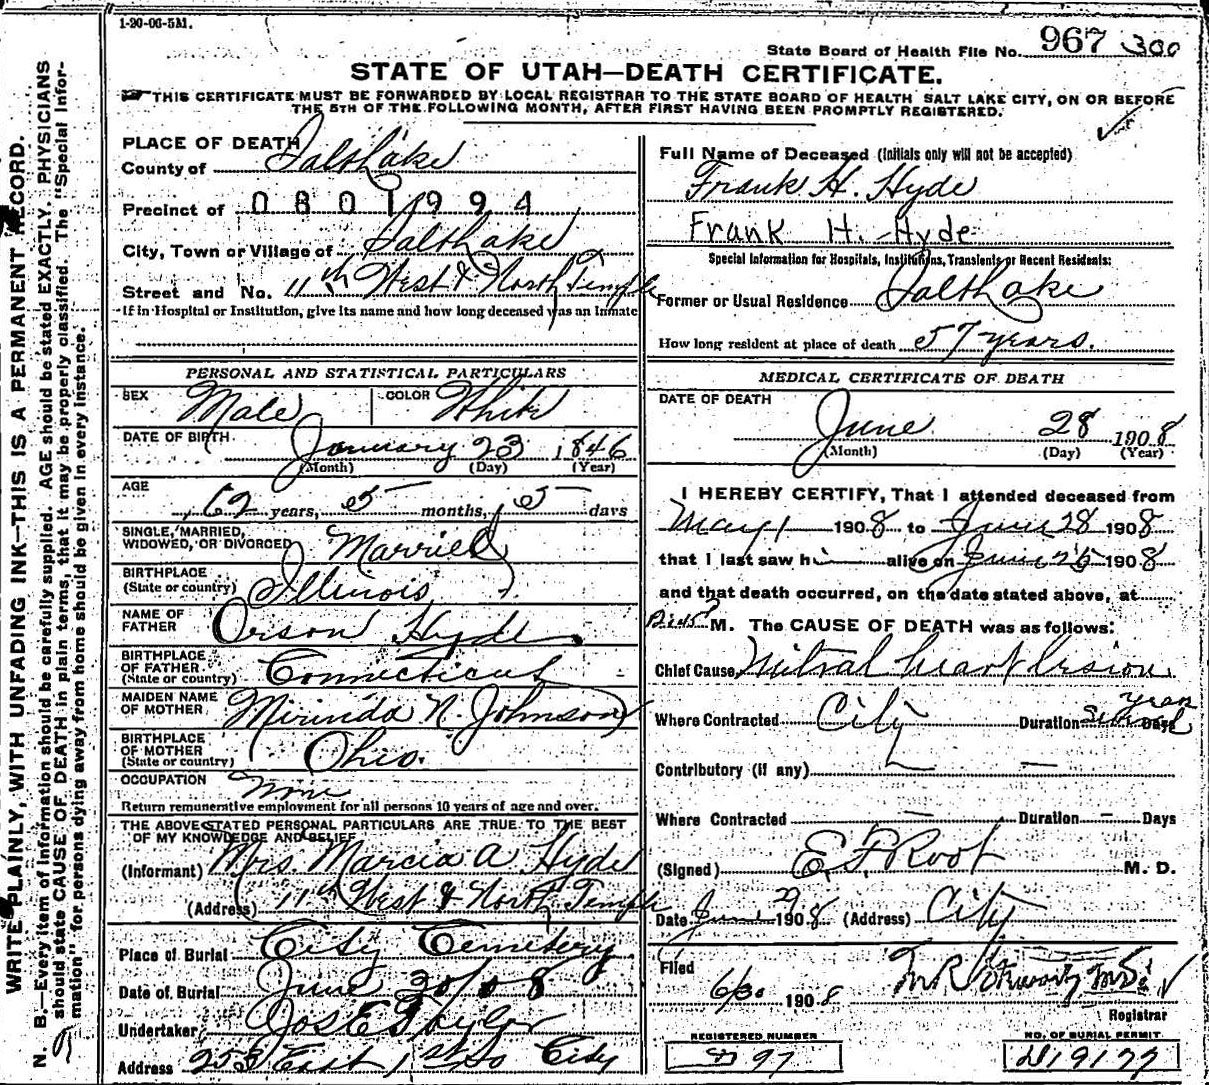 1-20-06-5M.
State Board of Health File No. 967 300
STATE OF UTAH—DEATH CERTIFICATE.
THIS CERTIFICATE MUST BE FORWARDED BY LOCAL REGISTRAR TO THE STATE BOARD OF HEALTH SALT LAKE CITY, ON OR BEFORE
THE 5TH OF THE FOLLOWING MONTH, AFTER FIRST HAVING BEEN PROMPTLY REGISTERED.
WRITE PLAINLY, WITH UNFADING INK—THIS IS A PERMANENT RECORD.
N. B.—Every item of information should be carefully supplied. AGE should be stated EXACTLY. PHYSICIANS
should state CAUSE OF DEATH in plain terms, that it may be properly classified. The "Special Infor-
mation" for persons dying away from home should be given in every instance.
PLACE OF DEATH
County of Salt Lake
Precinct of 0801994
City, Town or Village of Salt Lake
Street and No. 11th West & North Temple
If in Hospital or Institution, give its name and how long deceased was an inmate
PERSONAL AND STATISTICAL PARTICULARS
SEX Male COLOR White
DATE OF BIRTH January 23 1846
(Month) (Day) (Year)
AGE
62 years, 5 months, 5 days
SINGLE, MARRIED,
WIDOWED, OR DIVORCED Married
BIRTHPLACE
(State or country) Illinois
NAME OF
FATHER Orson Hyde
BIRTHPLACE
OF FATHER
(State or country) Connecticut
MAIDEN NAME
OF MOTHER Mirinda N. Johnson
BIRTHPLACE
OF MOTHER
(State or country) Ohio.
OCCUPATION None
Return remunerative employment for all persons 10 years of age and over.
THE ABOVE STATED PERSONAL PARTICULARS ARE TRUE TO THE BEST
OF MY KNOWLEDGE AND BELIEF
(Informant) Mrs. Marcia A Hyde
(Address) 11th West & North Temple
Place of Burial City Cemetery
Date of Burial June 30/08
Undertaker Jos E Taylor
Address 253 East 1st So City
Full Name of Deceased (Initials only will not be accepted)
Frank H. Hyde
Frank H. Hyde
Special Information for Hospitals, Institutions, Transients or Recent Residents:
Former or Usual Residence Salt Lake
How long resident at place of death 57 years.
MEDICAL CERTIFICATE OF DEATH
DATE OF DEATH
June 28 1908
(Month) (Day) (Year)
I HEREBY CERTIFY, That I attended deceased from
May 1 1908 to June 28 1908
that I last saw him alive on June 25 1908
and that death occurred, on the date stated above, at
M. The CAUSE OF DEATH was as follows:
Chief Cause Mitral heart lesion
Where Contracted City Duration Several years Days
Contributory (if any) —
Where Contracted — Duration — Days
(Signed) E. F. Root M. D.
Date June 29 1908 (Address) City
Filed
6/30 1908
Registrar
REGISTERED NUMBER
D 97
NO. OF BURIAL PERMIT
D19177